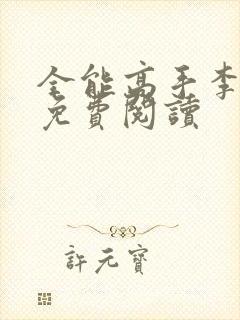 全能高手李
免費閱讀
許元寶